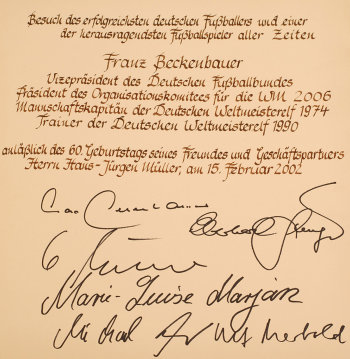 Besuch des erfolgreichsten deutschen Fußballers und einer
der herausragendsten Fußballspieler aller Zeiten
Franz Beckenbauer
Vizepräsident des Deutschen Fußballbundes
Präsident des Organisationskomitees für die WM 2006
Mannschaftskapitän der Deutschen Weltmeisterelf 1974
Trainer der Deutschen Weltmeisterelf 1990
anläßlich des 60. Geburtstags seines Freundes und Geschäftspartners
Herrn Hans-Jürgen Müller, am 15. Februar 2002
Marie-Luise Marjan